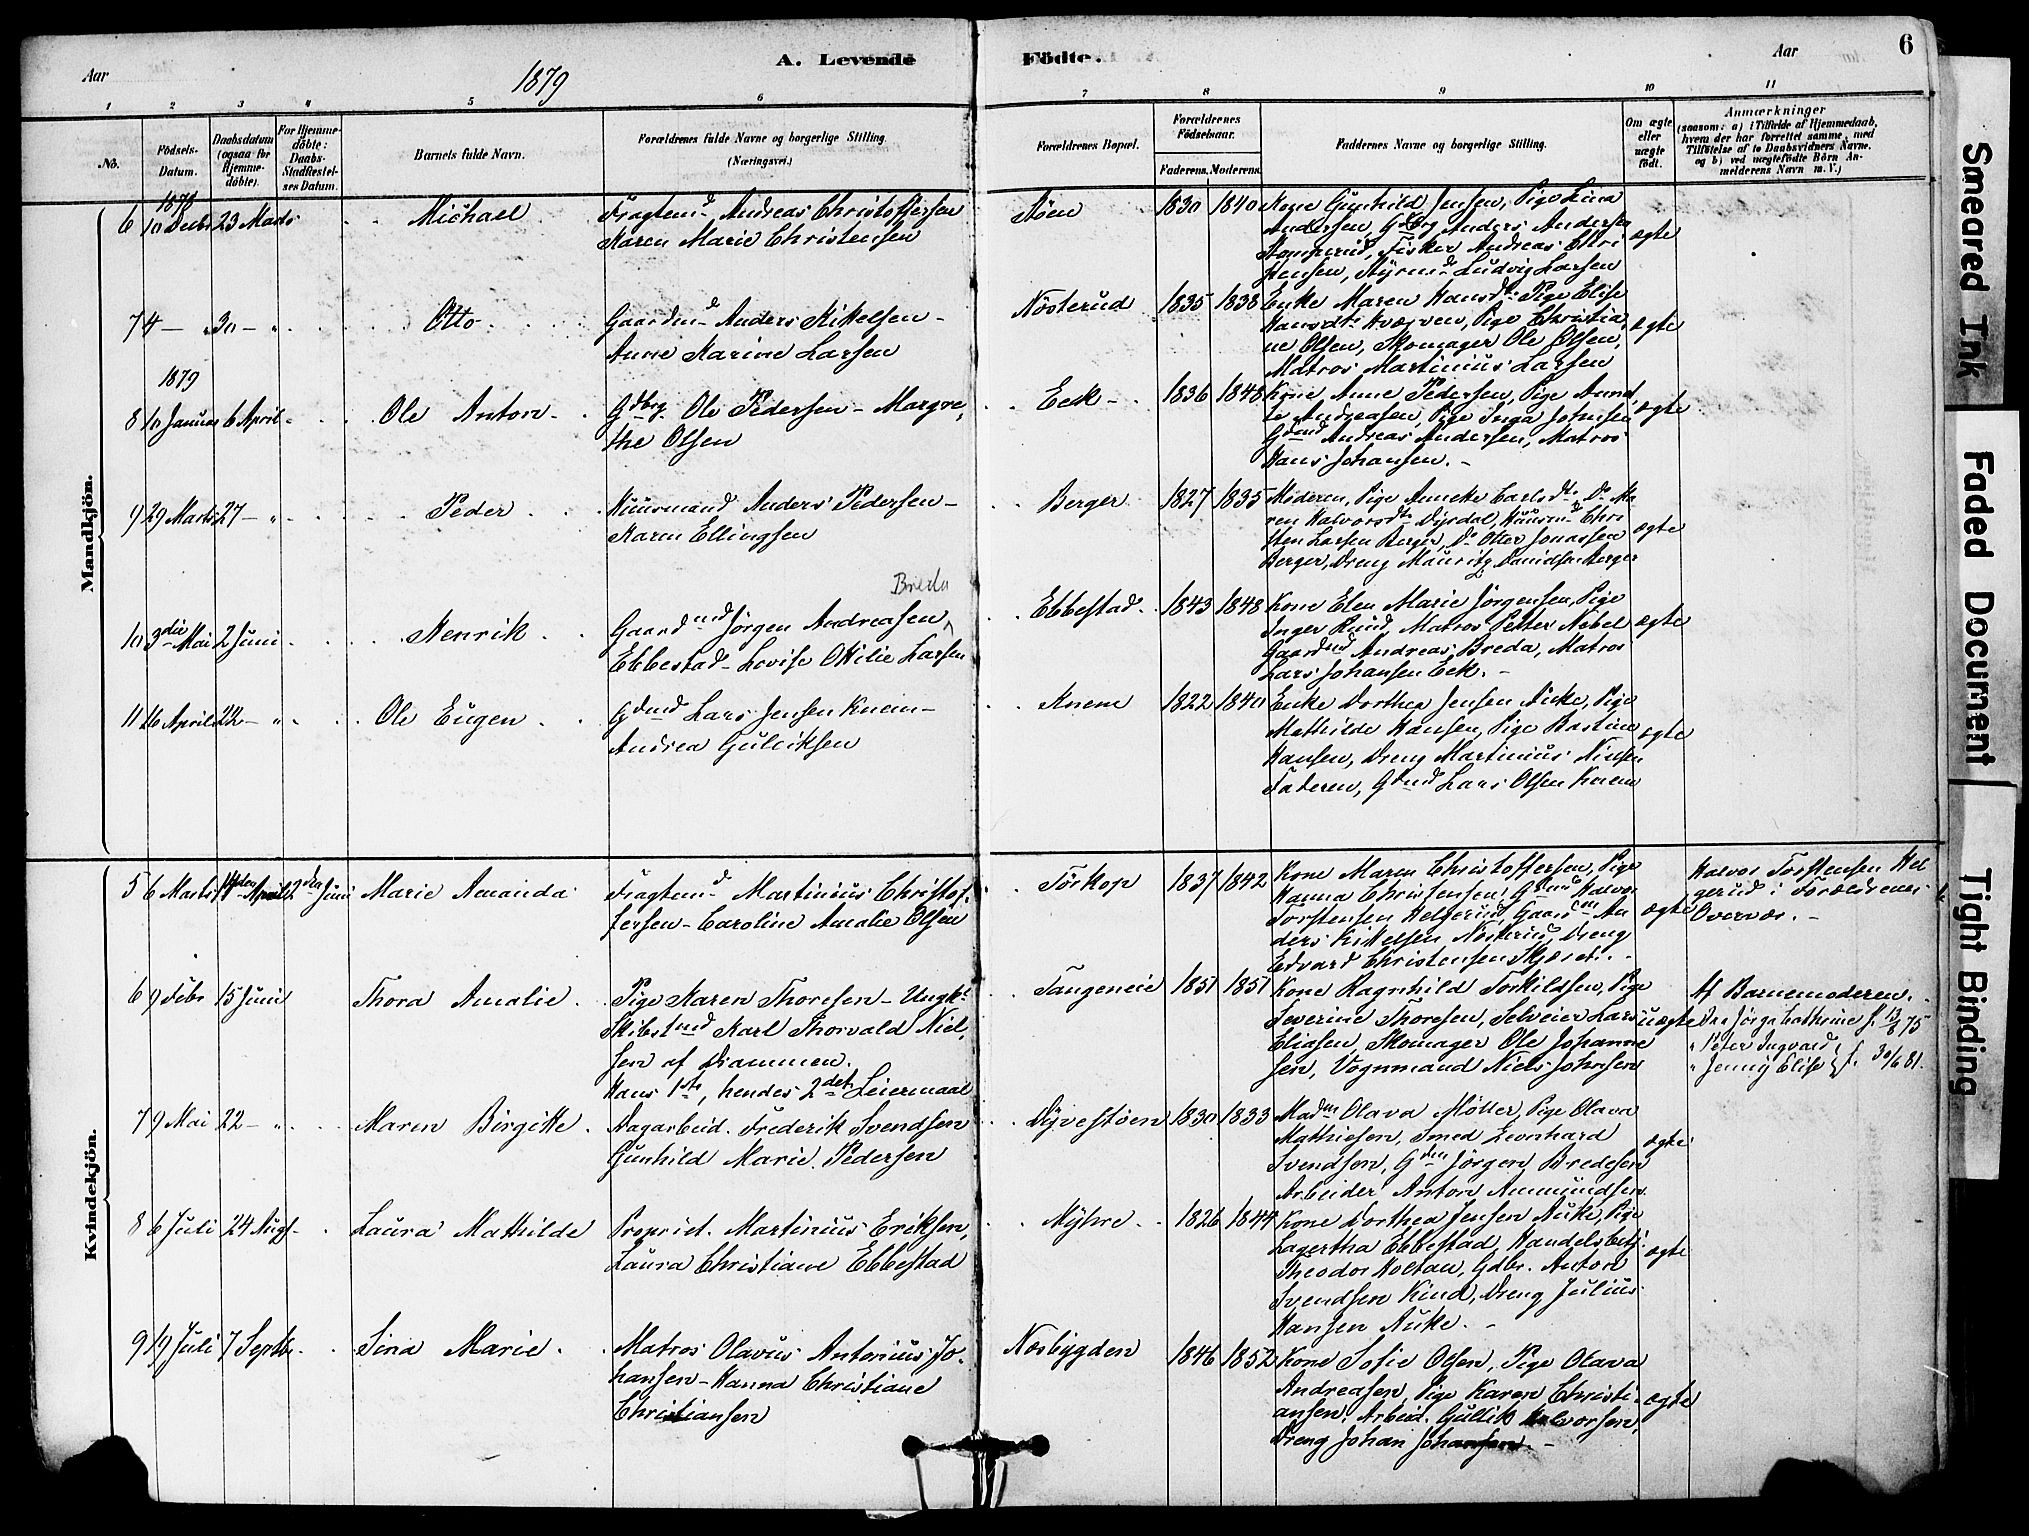 A. Levende Födte.
6
Aar 1879 Aar
1 2 3 4 5 6 7 8 9 10 11
No.
Födsels-
Datum.
Daabsdatum
(ogsaa for
Hjemme-
döbte).
For Hjemme-
döbte:
Daabs-
Stadfæstel-
ses Datum.
Barnets fulde Navn.
Forældrenes fulde Navne og borgerlige Stilling.
(Næringsvei.)
Forældrenes Bopæl.
Forældrenes
Födselsaar.
Faderens. Moderens.
Faddernes Navne og borgerlige Stilling.
Om ægte
eller
uægte
födt.
Anmærkninger
(saasom: a) i Tilfælde af Hjemmedaab,
hvem der har forrettet samme, med
Tilföielse af to Daabsvidners Navne.
og b) ved uægtefödte Börn An-
melderens Navn m. V.)
Mandkjön.
1878
6 10 Decbr 23 Marts Michael
Fragtemd Andreas Christoffersen
Karen Marie Christensen
Støen 1830 1840
Kone Gunhild Jensen, Pige Lina
Andersen, Gdbrg Anders Andersen
Fisker Andreas Chri
stensen, Styrmd Ludvig Larsen
ægte
7 4 — " 30 — " Otto
Gaardmd Anders Kittelsen —
Anne Karine Larsen
Nøsterud 1835 1838
Enke Maren Hansdtr Pige Elise
Hansdtr Kværven, Pige Christia
ne Olsen, Skomager Ole Olsen,
Matros Martinius Larsen
ægte
1879
8 10 Januar 6 April Ole Anton
Gdbrg. Ole Pedersen — Margre
the Olsen
Eek 1836 1848
Kone Anne Pedersen, Pige Anna
Andreasen, Pige Inga Johnsen
Gdmd Andreas Andersen, Matros
Hans Johansen. —
ægte
9 29 Marts 27 — " Peder
Huusmand Anders Pedersen —
Karen Ellingsen
Berger 1827 1835
Moderen, Pige Anneke Carlsdtr, Do Ma
ren Halvorsdtr Dyrdal, Huusmd Chri
sten Larsen Berger, Do Otter Jonassen
Berger, Dreng Mauritz Davidsen Berger
ægte
Breda
10 3die Mai 2 Juni Henrik
Gaardmd Jørgen Andreasen
Ebbestad — Lovise Otilie Larsen
Ebbestad 1843 1848
Kone Elen Marie Jörgensen, Pige
Inger Ruud, Matros Petter Nebel
Gaardmd Andreas Breda, Matros
Lars Johansen Eek. —
ægte
11 26 April 22 — " Ole Eugen
Gdmd Lars Jensen Knem —
Andrea Gulliksen
Knem 1822 1840
Enke Dorthea Jensen Auke, Pige
Mathilde Hansen, Pige Bastine
Hansen, Dreng Martinius Nielsen
Faderen, Gdmd Lars Olsen Knem
ægte
Kvindekjön.
5 6 Marts 14den April 2den Juni Marie Amanda
Fragtemd Martinius Christof,
fersen — Caroline Amalie Olsen
Törkop 1837 1842
Kone Maren Christoffersen, Pige
Hanna Christensen, Gdmd Halvor
Torstensen Helgerud, Gaardm An
ders Kittelsen Nøsterud, Dreng
Edvard Christensen Skjæret. —
ægte
Halvor Torstensen Hel
gerud i Forældrenes
Overvær. —
6 9 Febr 15 Juni Thora Amalie
Pige Karen Thoresen — Ungk:
Skibstmd Karl Thorvald Niel,
sen af Drammen.
Hans 1ste, hendes 2det Leiermaal
Tangeneie 1851 1851
Kone Ragnhild Torkildsen, Pige
Severine Thoresen, Selveier Lars
Eliasen, Skomager Ole Johanne
sen, Vognmand Niels Johnsen
uægte
Af Barnemoderen.
Jørga Cathrine f. 13/8 75
" Peter Ingvard
" Jenny Elise } f. 30/6 81.
7 9 Mai 22 — " Maren Birgitte
Dagarbeid. Frederik Svendsen
Gunhild Marie Pedersen
Dyvestøen 1830 1833
Madm Olava Møller, Pige Olava
Mathiesen, Smed Leonhard
Svendsen, Gdm Jörgen Bredesen
Arbeider Anton Ammundsen
ægte
8 6 Juli 24 Augs Laura Mathilde
Propriet. Martinius Eriksen,
Laura Christiane Ebbestad
Myhre 1826 1844
Kone Dorthea Jensen Auke, Pige
Lagertha Ebbestad, Handelsbetj.
Theodor Holtan, Gdbr. Anton
Svendsen Kind, Dreng Julius
Hansen Auke. —
ægte
9 19 Juli 7 Septbr Sina Marie
Matros Olavus Antonius Jo,
hansen — Hanna Christiane
Christiansen
Nosbygden 1846 1852
Kone Sofie Olsen, Pige Olava
Andreasen, Pige Karen Christi
ansen, Arbeid. Gullik Halvorsen,
Dreng Johan Johansen. —
ægte
Smeared Ink
Faded Document
Tight Binding